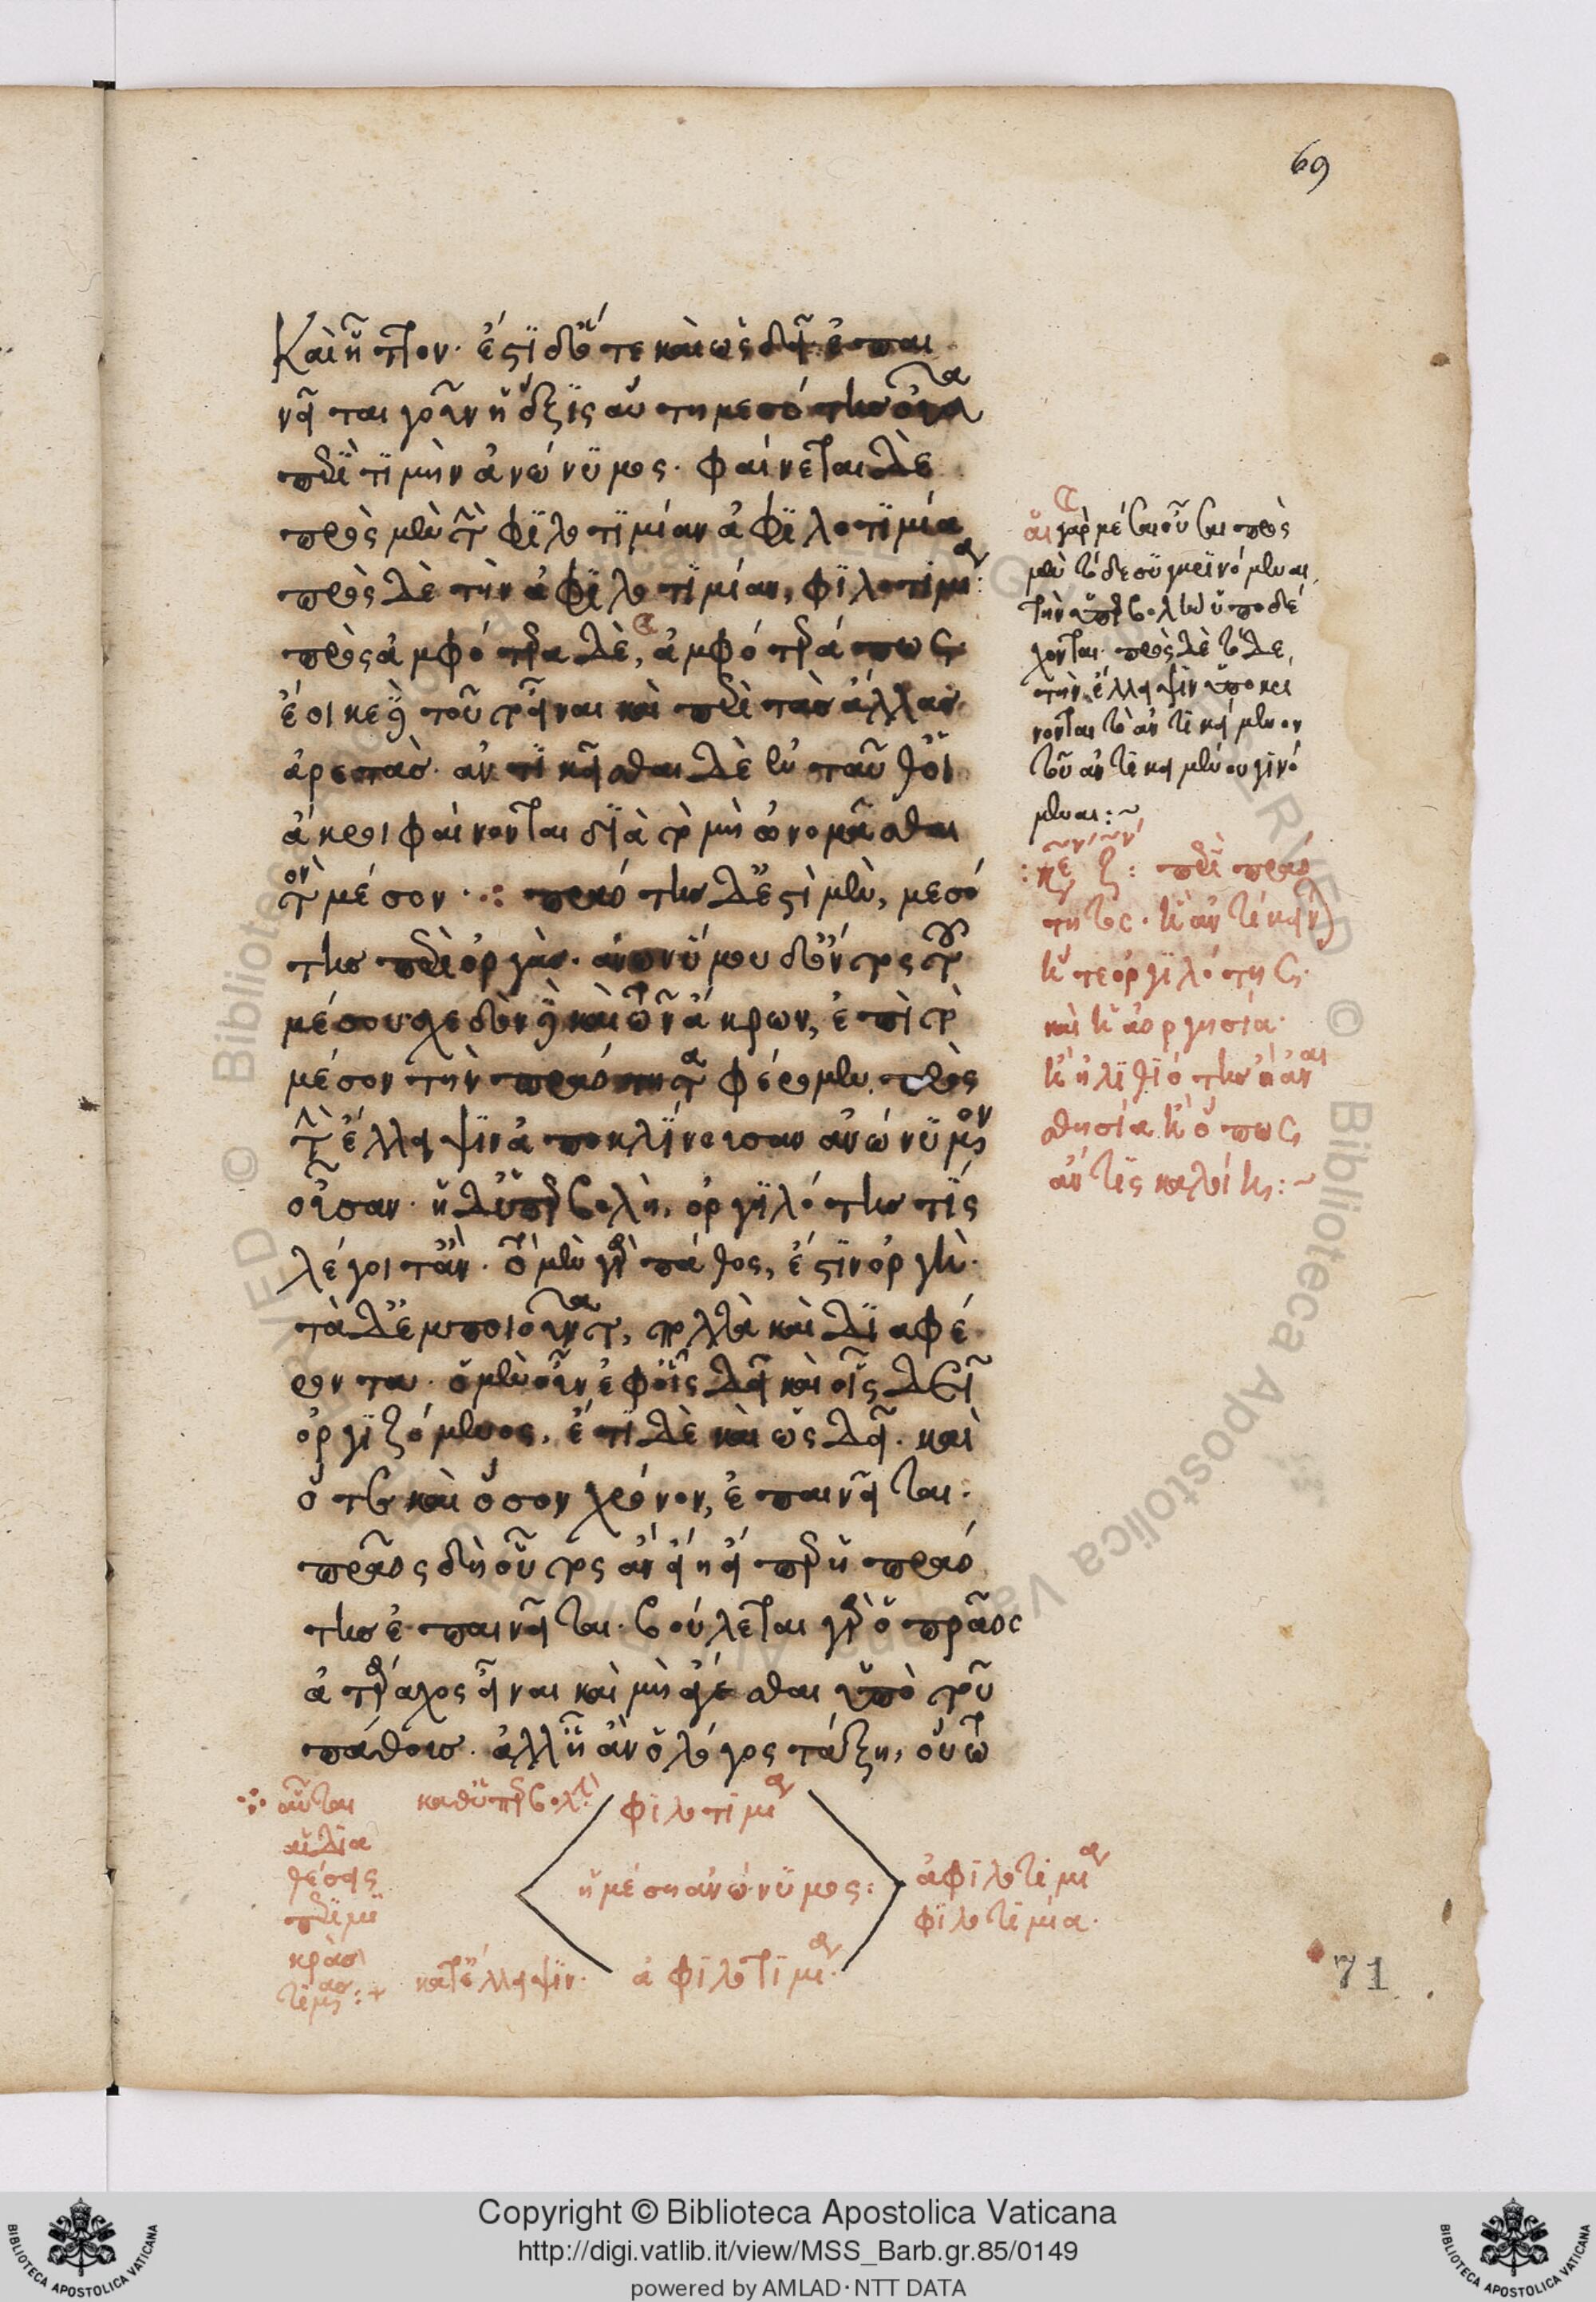 69
καὶ ἧττον. ἔστι δ' ὅτε καὶ ὡς δεῖ. ἐπαι
νεῖται γοῦν ἡ ἕξις αὕτη μεσότης οὖσα
περὶ τιμὴν ἀνώνυμος. φαίνεται δὲ
πρὸς μὲν τὴν φιλοτιμίαν ἀφιλοτιμία
πρὸς δὲ τὴν ἀφιλοτιμίαν, φιλοτιμία:
πρὸς ἀμφότερα δὲ, ἀμφότερά πως.
ἔοικε δὲ τοῦτ' εἶναι καὶ περὶ τὰς ἄλλας
ἀρετὰς. ἀντικεῖσθαι δὲ ἐνταῦθ' οἱ
ἄκροι φαίνονται διὰ τὸ μὴ ὠνομᾶσθαι
τὸν μέσον. πραότης δ' ἐστὶ μὲν, μεσό
της περὶ ὀργὰς. ἀνωνύμου δ' ὄντος τοῦ
μέσου σχεδὸν δὲ καὶ τῶν ἄκρων, ἐπὶ τὸ
μέσον τὴν πραότητα φέρομεν, πρὸς
τὴν ἔλλειψιν ἀποκλίνουσαν ἀνώνυμον
οὖσαν. ἡ δ' ὑπερβολὴ, ὀργιλότης τίς
λέγοιτ' ἂν. τὸ μὲν γὰρ πάθος, ἐστὶν ὀργή.
τὰ δ' ἐμποιοῦντα, πολλὰ καὶ διαφέ
ροντα. ὁ μὲν οὖν ἐφ' οἷς δεῖ καὶ οἷς δεῖ
ὀργιζόμενος, ἔτι δὲ καὶ ὡς δεῖ. καὶ
ὅτε καὶ ὅσον χρόνον, ἐπαινεῖται:
πρᾶος δὴ οὗτος ἂν εἴη εἴπερ ἡ πραό
της ἐπαινεῖται. βούλεται γὰρ ὁ πρᾶος
ἀτάραχος εἶναι καὶ μὴ ἄγεσθαι ὑπὸ τοῦ
πάθους. ἀλλ' ἢ ἂν ὁ λόγος τάξῃ, οὕτω
αἱ γὰρ μέσαι οὖσαι πρὸς
μὲν τόδε συγκρινόμεναι,
τὴν ὑπερβολὴν ὑποδέ
χονται. πρὸς δὲ τόδε,
τὴν ἔλλειψιν ὑποκρί
νονται τὸ ἀντικείμενον
τοῦ ἀντικειμένου γινό
μεναι:~
περὶ πραό
τητος. κ' ἀντίκειν)
ἥ τε ὀργιλότης.
καὶ ἡ ἀοργησία.
ἢ ἠλιθιότης ἢ ἀναι
σθησία ἢ ὅπως
ἄν τις καλοίη:~
αὗται
αἱ δια
θέσεις
περὶ μι
κρὰς
τιμάς:+
καθ' ὑπερβολὴν
φιλοτιμία
ἡ μέση ἀνώνυμος:
ἀφιλοτιμία
φιλοτιμία.
κατ' ἔλλειψιν.
ἀφιλοτιμία.
71
Copyright © Biblioteca Apostolica Vaticana
http://digi.vatlib.it/view/MSS_Barb.gr.85/0149
powered by AMLAD·NTT DATA
BIBLIOTECA APOSTOLICA VATICANA
BIBLIOTECA APOSTOLICA VATICANA